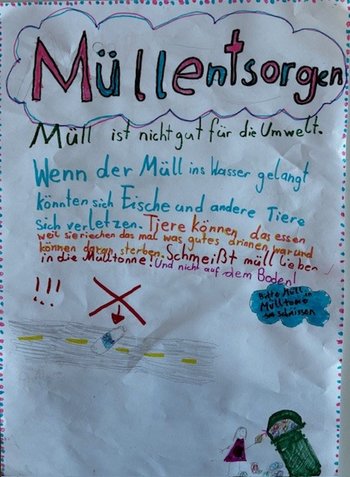 Müllentsorgen
Müll ist nicht gut für die Umwelt.
Wenn der Müll ins Wasser gelangt
könnten sich Fische und andere Tiere
sich verletzen. Tiere können das essen
weil sie riechen das mal was gutes drinnen war und
können daran sterben. Schmeißt müll lieber
in die Mülltonne! Und nicht auf dem Boden!
!!!
Bitte Müll in
Mülltone